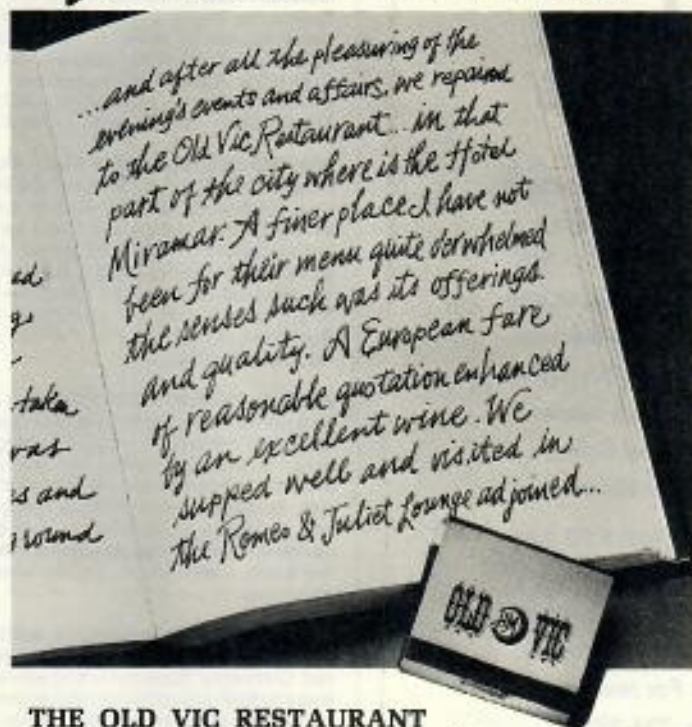 ad
g
taken
was
es and
ground
...and after all the pleasuring of the
evening's events and affairs, we repaired
to the Old Vic Restaurant... in that
part of the city where is the Hotel
Miramar. A finer place I have not
been for their menu quite o'erwhelmed
the senses such was its offerings
and quality. A European fare
of reasonable quotation enhanced
by an excellent wine. We
supped well and visited in
the Romeo & Juliet Lounge adjoined...
OLD VIC
THE OLD VIC RESTAURANT